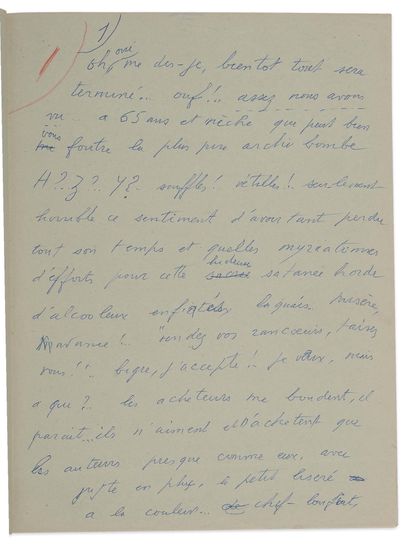 1)
oui
Oh, me dis-je, bientot tout sera
terminé... ouf!.. assez nous avons
vu - a 65 ans et mèche que peut bien
vous
me foutre la plus pure archi bombe
H?.. Z?.. Y?.. souffles! vétilles! seulement
horrible ce sentiment d'avoir tant perdu
tout son temps et quelles myriatonnes
hideuse
d'efforts pour cette satanée horde
d'alcooleux enfiatés laquais. misère,
Madame!.. "vendez vos rancœurs, taisez
vous!".. bigre, j'accepte!.. je veux, mais
a qui?.. les acheteurs me boudent, il
parait... ils n'aiment et n'achètent que
les auteurs presque comme eux, avec
juste en plus, le petit liseré
a la couleur... chef-